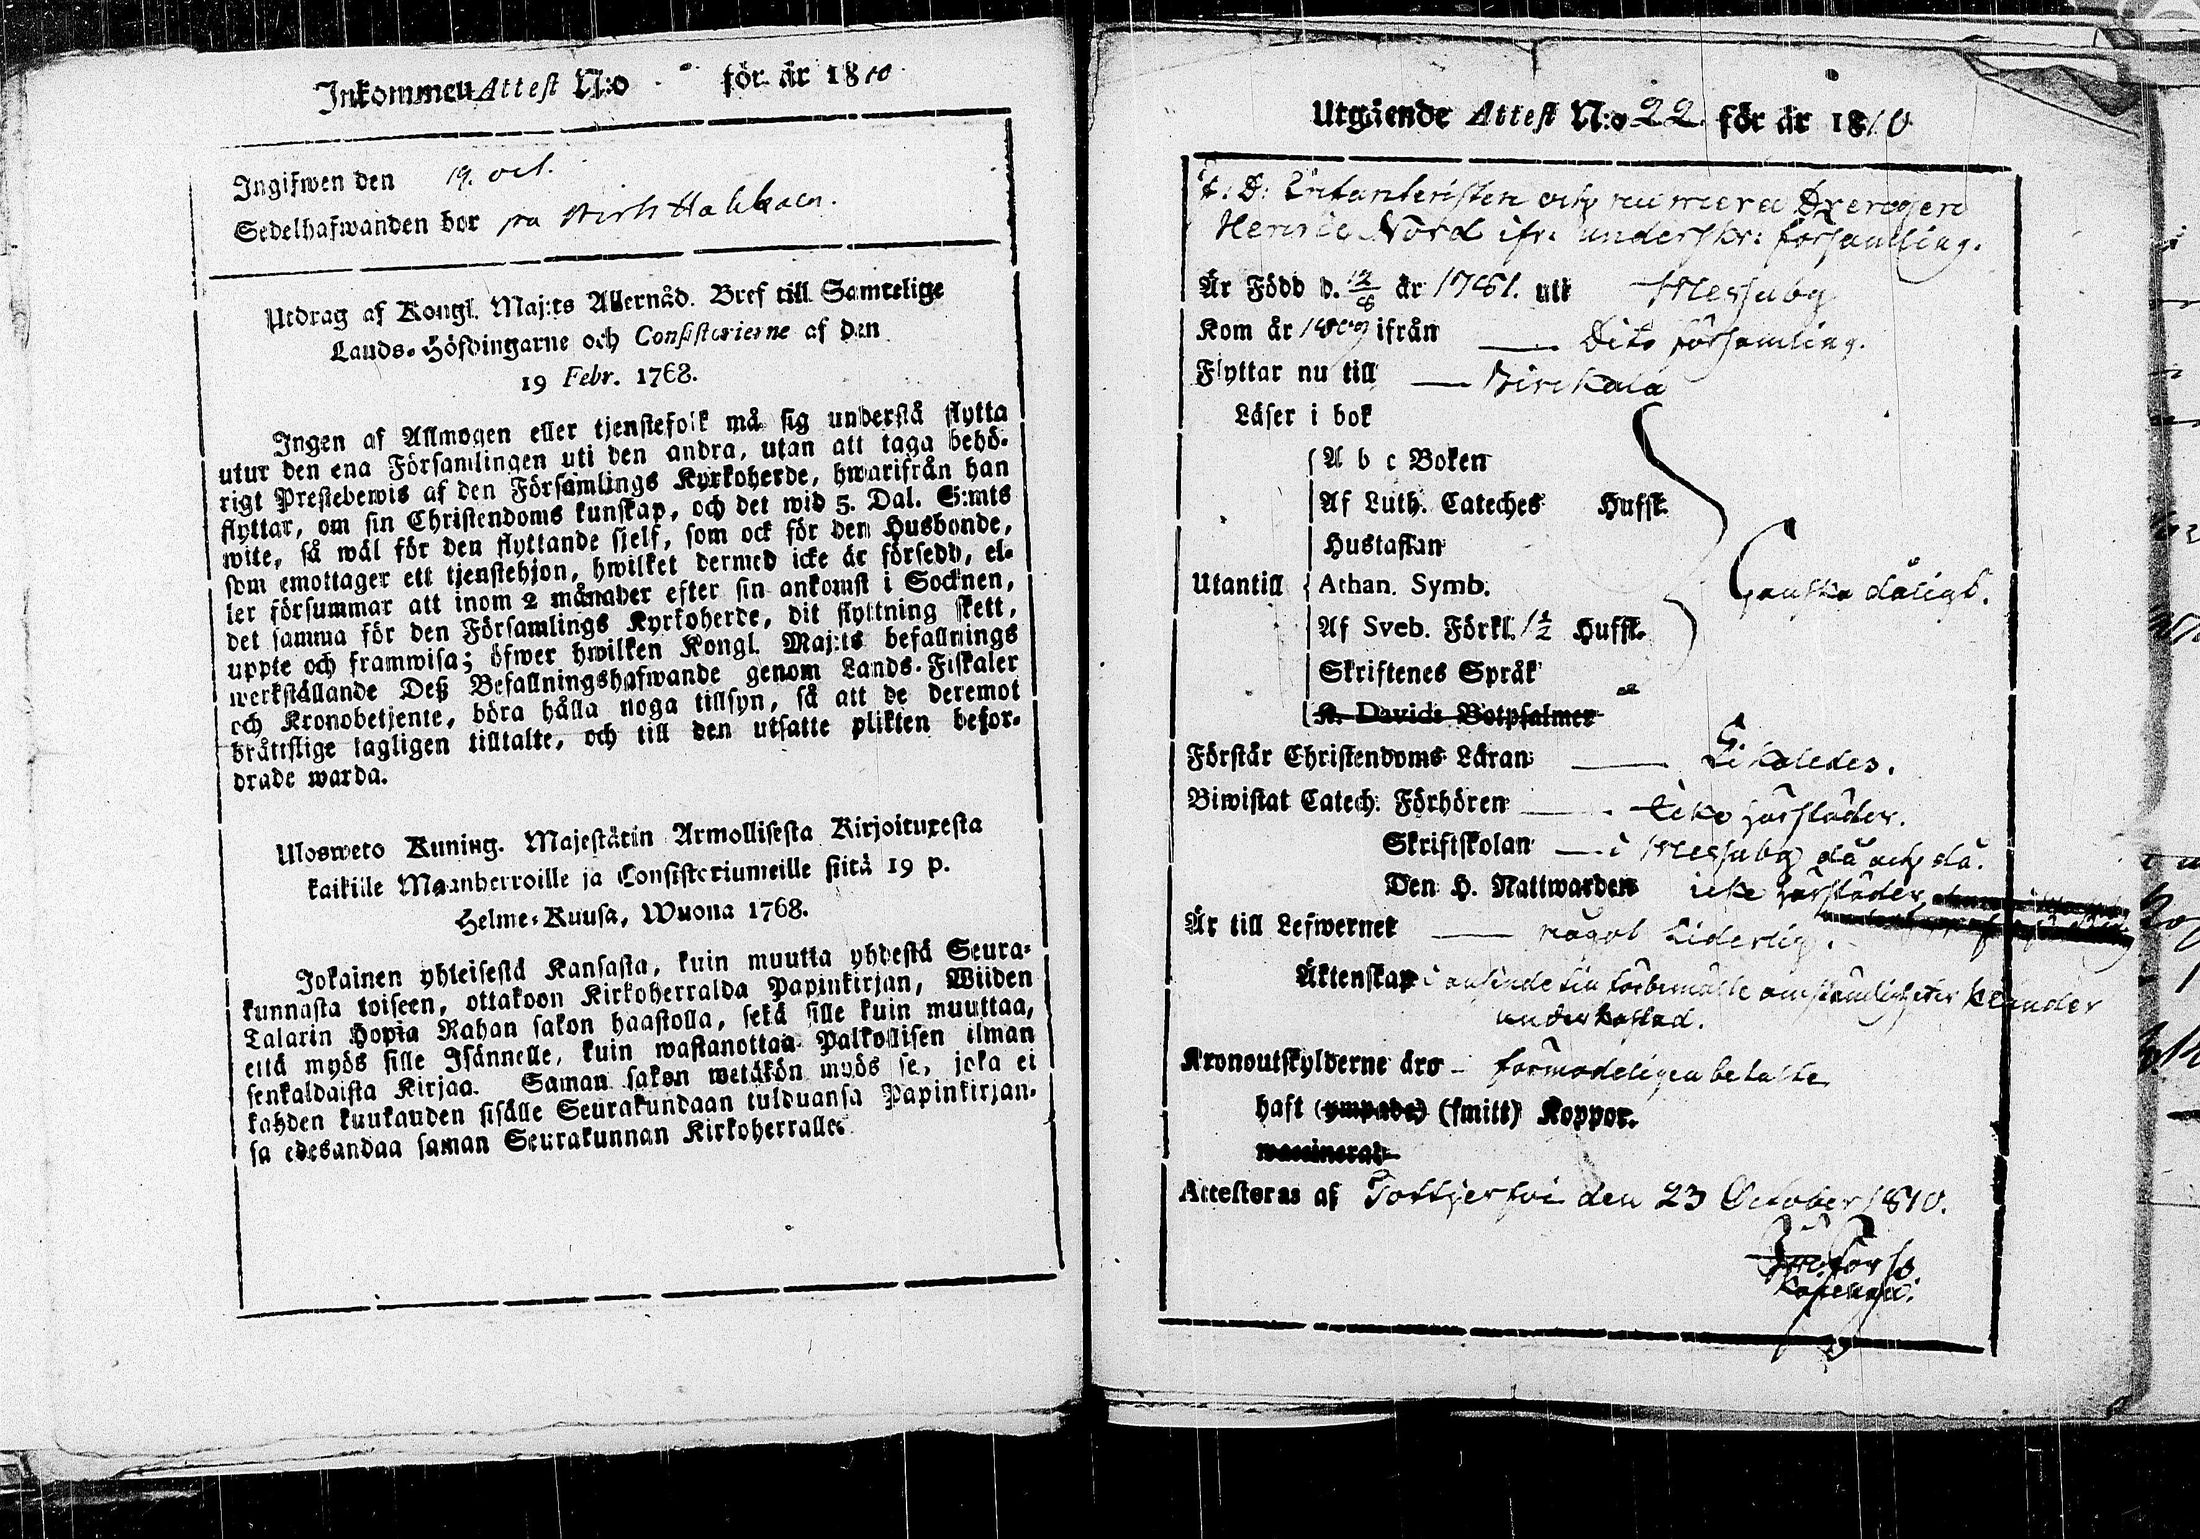 Inkommen Attest N:o för år 1810
Ingifwen den 19. oct.
Sedelhafwanden bor på
Utdrag af Kongl. Maj:ts Allernåd. Bref till Samtelige
Lands-Höfdingarne och Consistorierne af den
19 Febr. 1768.
Ingen af Allmogen eller tjenstefolk må sig understå flytta
utur den ena Församlingen uti den andra, utan att taga behö-
rigt Prestebewis af den Församlings Kyrkoherde, hwarifrån han
flyttar, om sin Christendoms kunskap, och det wid 5. Dal. S:mts
wite, så wäl för den flyttande sjelf, som ock för den Husbonde,
som emottager ett tjenstehjon, hwilket dermed icke är försedd, el-
ler försummar att inom 2 månader efter sin ankomst i Socknen,
det samma för den Församlings Kyrkoherde, dit flyttning skett,
uppte och framwisa; öfwer hwilken Kongl. Maj:ts befallnings
werkställande Deß Befallningshafwande genom Lands-Fiskaler
och Kronobetjente, böra hålla noga tillsyn, så att de deremot
bråttslige lagligen tilltalte, och till den utsatte plikten befor-
drade warda.
Ulosweto Kuning. Majestätin Armollisesta Kirjoituxesta
kaikille Maanherroille ja Consistoriumeille siitä 19 p.
Helme-Kuusa, Wuona 1768.
Jokainen yhteisestä Kansasta, kuin muutta yhdestä Seura-
kunnasta toiseen, ottakoon Kirkoherralda Papinkirjan, Wiiden
Talarin Hopia Rahan sakon haastolla, sekä sille kuin muuttaa,
että myös sille Isännelle, kuin wastanottaa Palkollisen ilman
senkaldaista Kirjaa. Saman sakon wetäkön myös se, joka ei
kahden kuukauden sisälle Seurakundaan tulduansa Papinkirjan-
sa edesandaa saman Seurakunnan Kirkoherralle.
Utgående Attest N:o 22 för år 1810
f. D. Infanteristen och numera Drengen
Henric Nord ifr. underskr: församling.
Är Född d. 12/8 år 1781. uti Messuby
Kom år 1809 ifrån Dito församling.
Flyttar nu till Birckala
Läser i bok
A b c Boken
Af Luth. Cateches Hufst.
Hustaflan
Utantill Athan. Symb. Ganska dåligt.
Af Sveb. Förkl. 1 1/2 Hufst.
Skriftenes Språk
K. Davids Botpsalmer
Förstår Christendoms Läran Likaledes.
Biwistat Catech. Förhören Icke härstädes.
Skriftskolan i Messuby då och då.
Den H. Nattwarden icke härstädes
Är till Lefwernet något Liderlig.
Äktenskap i anseende till förbemälte omständigheter klander
underkastad.
Kronoutskylderne äro förmodeligen betalte
haft (ympade) (smitt) Koppor.
waccinerad
Attesteras af Tottjerfvi den 23 October 1810.